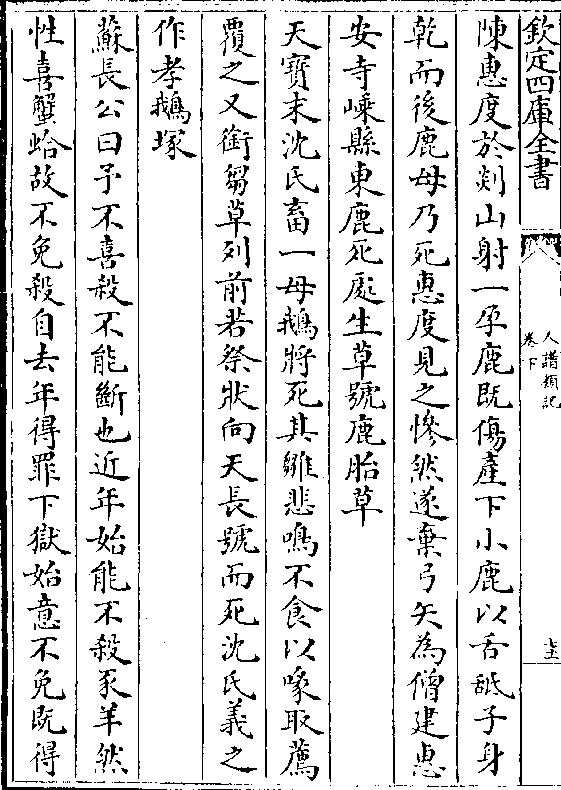 欽定四庫全書
人譜類記
卷下
陳惠度於剡山射一孕鹿既傷產下小鹿以舌舐子身
乾而後鹿母乃死惠度見之慘然遂棄弓矢為僧建惠
安寺嵊縣東鹿死處生草號鹿胎草
天寶末沈氏畜一母鵝將死其雛悲鳴不食以喙取薦
覆之又銜芻草列前若祭狀向天長號而死沈氏義之
作孝鵝塚
蘇長公曰予不喜殺不能斷也近年始能不殺豕羊然
性喜蟹蛤故不免殺自去年得罪下獄始意不免既得